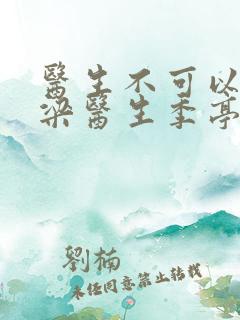 醫生不可以
梁醫生季亭
劉楠
未经同意禁止转载